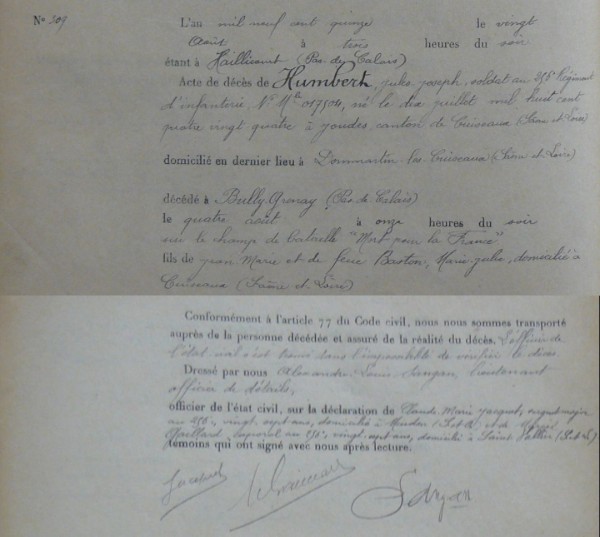 N° 309
L'an mil neuf cent quinze le vingt
août à trois heures du soir
étant à Haillicourt (Pas de Calais)
Acte de décès de Humbert, jules joseph, soldat au 256e Régiment
d'infanterie, N° Mle 017504, né le dix juillet mil huit cent
quatre vingt quatre à joudes, canton de Cuiseaux (Saône et Loire)
domicilié en dernier lieu à Dommartin-les-Cuiseaux (Saône et Loire)
décédé à Bully-Grenay (Pas de Calais)
le quatre août à onze heures du soir
sur le champ de bataille "Mort pour la France"
fils de jean Marie et de feue Marie julie, domicilié à
Cuiseaux (Saône et Loire)
Conformément à l'article 77 du Code civil, nous nous sommes transporté
auprès de la personne décédée et assuré de la réalité du décès. L'officier de
l'état civil s'est trouvé dans l'impossibilité de vérifier le décès
Dressé par nous Alexandre Louis lieutenant
officier de détails,
officier de l'état civil, sur la déclaration de Claude Marie jacquet, sergent major
au 256e, vingt sept ans, domicilié à (S et L) et de
Gaillard, caporal au 256e, vingt sept ans, domicilié à Saint Vallier (S et L)
témoins qui ont signé avec nous après lecture.